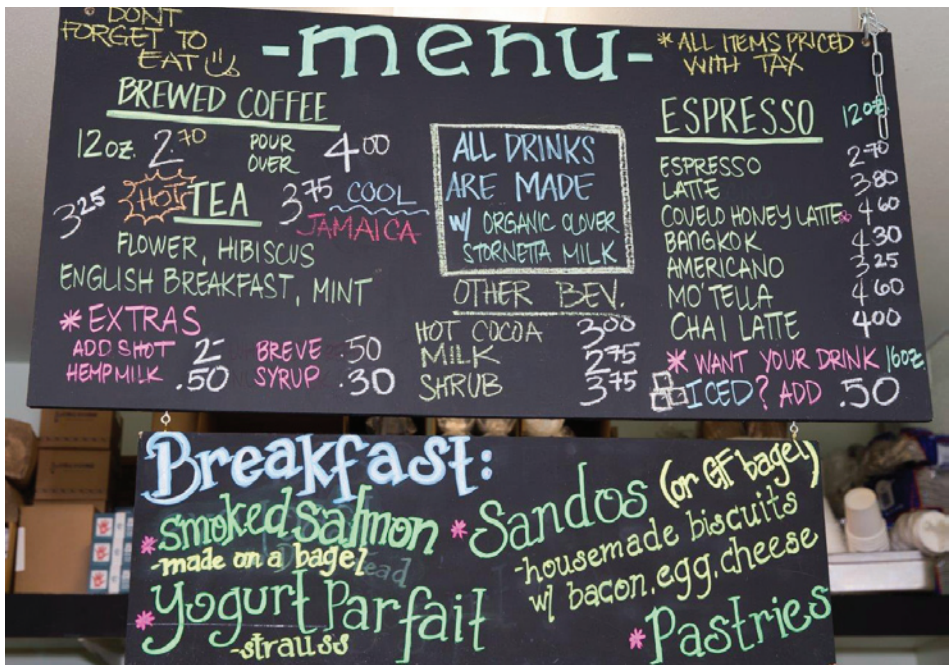 * DONT
FORGET TO
EAT
-menu-
* ALL ITEMS PRICED
WITH TAX
BREWED COFFEE
12oz. 2.70 POUR OVER 4.00
3.25 HOT TEA 3.75 COOL
JAMAICA
FLOWER, HIBISCUS
ENGLISH BREAKFAST, MINT
* EXTRAS
ADD SHOT 2- BREVE .50
HEMPMILK .50 SYRUP .30
ALL DRINKS
ARE MADE
W/ ORGANIC CLOVER
STORNETTA MILK
OTHER BEV.
HOT COCOA 3.00
MILK 2.75
SHRUB 3.75
ESPRESSO 12oz.
ESPRESSO 2.70
LATTE 3.80
COVELO HONEY LATTE 4.60
BANGKOK 4.30
AMERICANO 3.25
MO'TELLA 4.60
CHAI LATTE 4.00
* WANT YOUR DRINK 16oz.
ICED? ADD .50
Breakfast:
* smoked salmon
-made on a bagel
* Yogurt Parfait
-strauss
* Sandos (or GF bagel)
-housemade biscuits
w/ bacon, egg, cheese
* Pastries